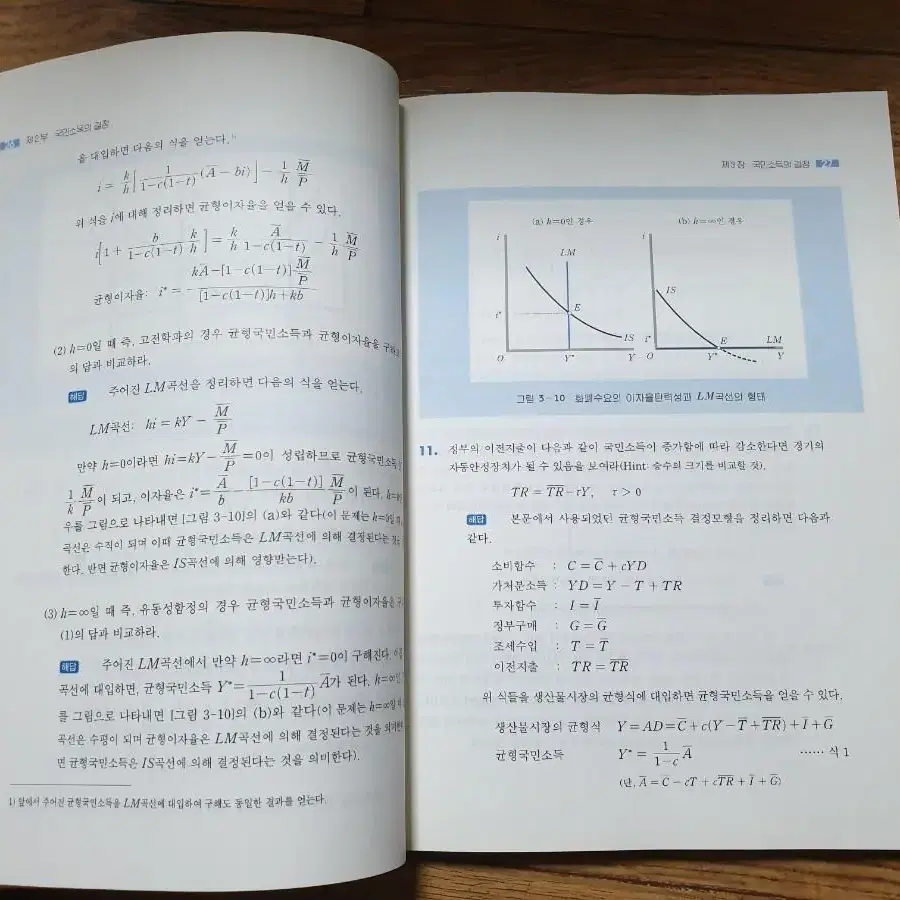 제2부 국민소득의 결정
을 대입하면 다음의 식을 얻는다.¹⁾
i = k/h [ 1/(1-c(1-t)) (A̅ - bi) ] - 1/h M̅/P̅
위 식을 i에 대해 정리하면 균형이자율을 얻을 수 있다.
i[ 1 + b/(1-c(1-t)) k/h ] = k/h A̅/(1-c(1-t)) - 1/h M̅/P̅
균형이자율: i* = (kA̅-[1-c(1-t)] M̅/P̅) / ([1-c(1-t)]h+kb)
(2) h=0일 때 즉, 고전학파의 경우 균형국민소득과 균형이자율을
의 답과 비교하라.
해답 주어진 LM곡선을 정리하면 다음의 식을 얻는다.
LM곡선: hi = kY - M̅/P̅
만약 h=0이라면 hi=kY- M̅/P̅ =0이 성립하므로 균형국민소득
1/k M̅/P̅ 이 되고, 이자율은 i* = A̅/b - [1-c(1-t)]/kb M̅/P̅ 이 된다.
우를 그림으로 나타내면 [그림 3-10]의 (a)와 같다(이 문제는 h=0일
곡선은 수직이 되며 이때 균형국민소득은 LM곡선에 의해 결정된다는
한다. 반면 균형이자율은 IS곡선에 의해 영향받는다).
(3) h=∞일 때 즉, 유동성함정의 경우 균형국민소득과 균형이자율을
(1)의 답과 비교하라.
해답 주어진 LM곡선에서 만약 h=∞라면 i*=0이 구해진다.
곡선에 대입하면, 균형국민소득 Y* = 1/(1-c(1-t)) A̅가 된다. h=∞인
를 그림으로 나타내면 [그림 3-10]의 (b)와 같다(이 문제는 h=∞일
곡선은 수평이 되며 균형이자율은 LM곡선에 의해 결정된다는 것을
면 균형국민소득은 IS곡선에 의해 결정된다는 것을 의미한다).
1) 앞에서 주어진 균형국민소득을 LM곡선에 대입하여 구해도 동일한 결과를 얻는다.
제3장 국민소득의 결정 27
(a) h=0인 경우
i
LM
i*
E
IS
O
Y*
Y
(b) h=∞인 경우
i
IS
i*
E
LM
O
Y*
Y
그림 3-10 화폐수요의 이자율탄력성과 LM곡선의 형태
11. 정부의 이전지출이 다음과 같이 국민소득이 증가함에 따라 감소한다면 경기의
자동안정장치가 될 수 있음을 보여라(Hint: 승수의 크기를 비교할 것).
TR = T̅R̅ - τY, τ > 0
해답 본문에서 사용되었던 균형국민소득 결정모형을 정리하면 다음과
같다.
소비함수 : C = C̅ + cYD
가처분소득 : YD = Y - T + TR
투자함수 : I = I̅
정부구매 : G = G̅
조세수입 : T = T̅
이전지출 : TR = T̅R̅
위 식들을 생산물시장의 균형식에 대입하면 균형국민소득을 얻을 수 있다.
생산물시장의 균형식 Y = AD = C̅ + c(Y - T̅ + T̅R̅) + I̅ + G̅
균형국민소득 Y* = 1/(1-c) A̅ …… 식 1
(단, A̅ = C̅ - cT̅ + cT̅R̅ + I̅ + G̅)